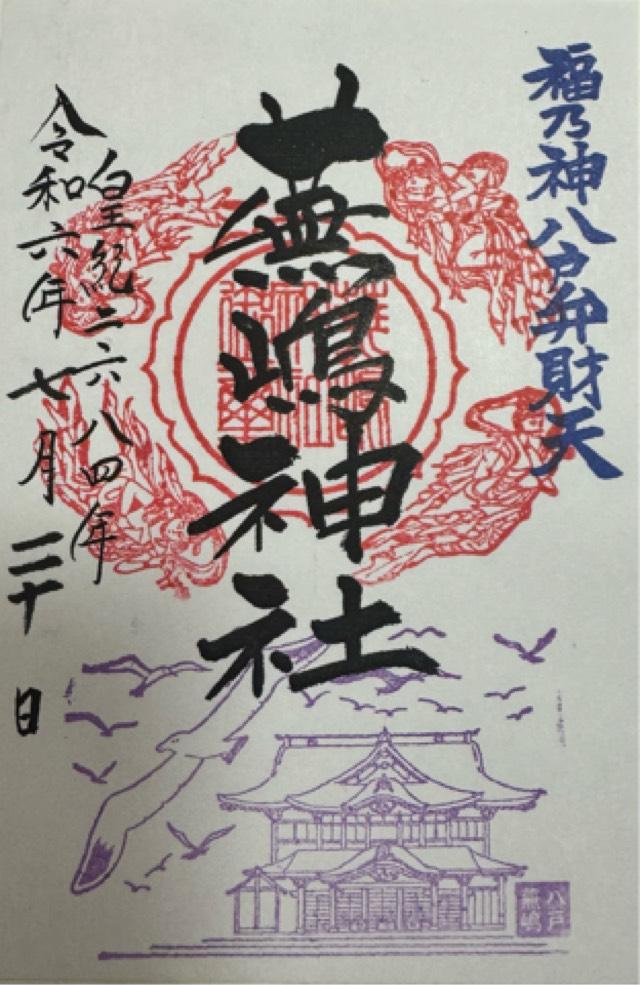 福乃神八戸弁財天
蕪嶋神社
皇紀二六八四年
令和六年七月二十日
八戸
蕪嶋